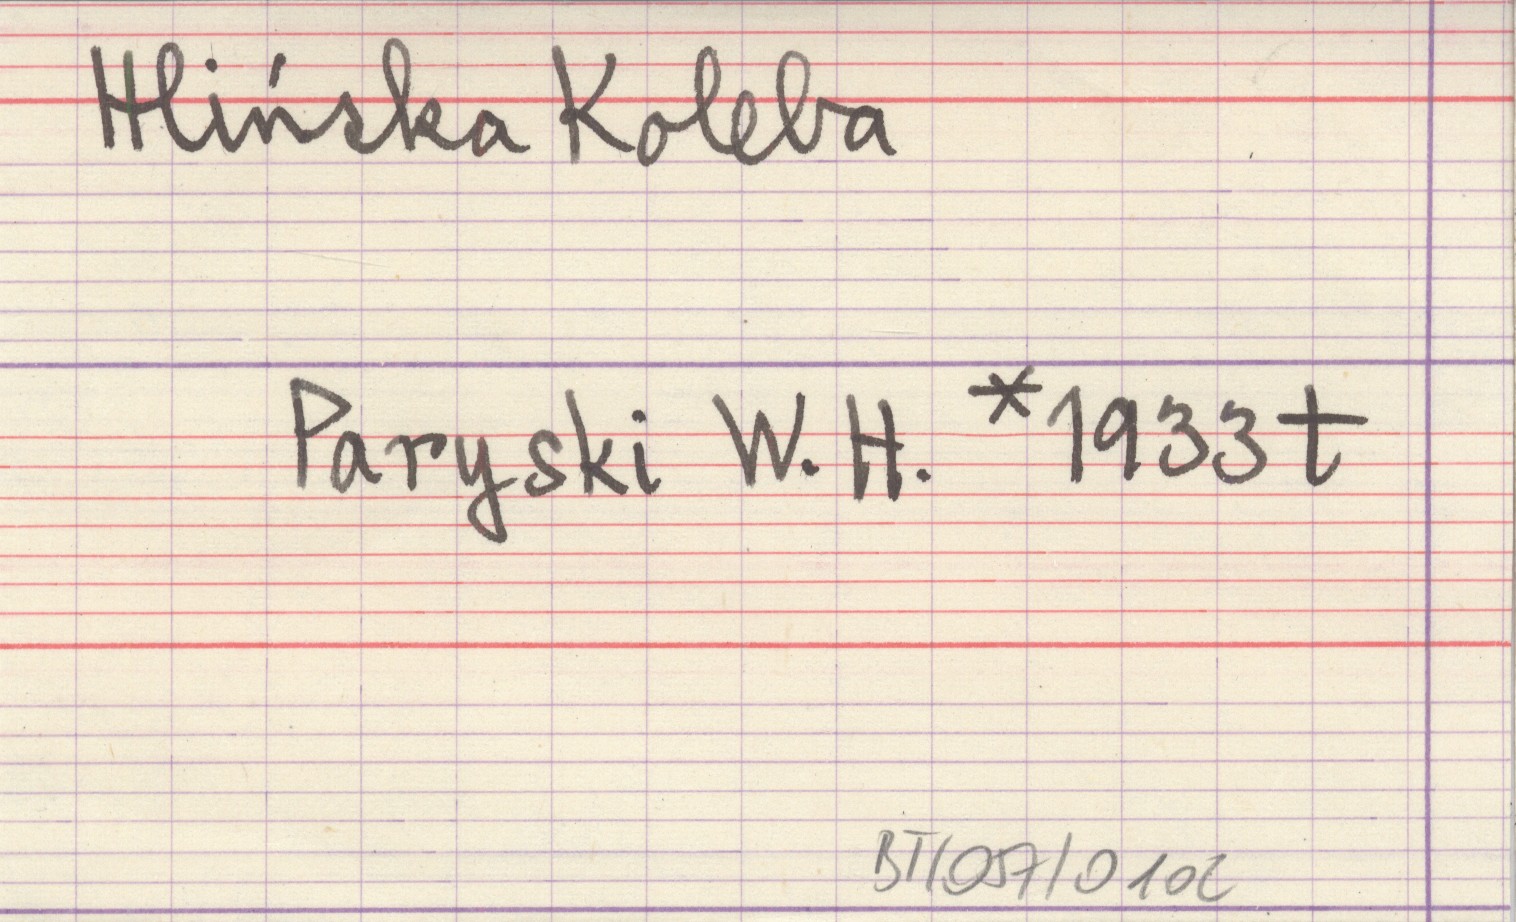 Hlińska Koleba
Paryski W. H. *1933 t
BT/057/0102